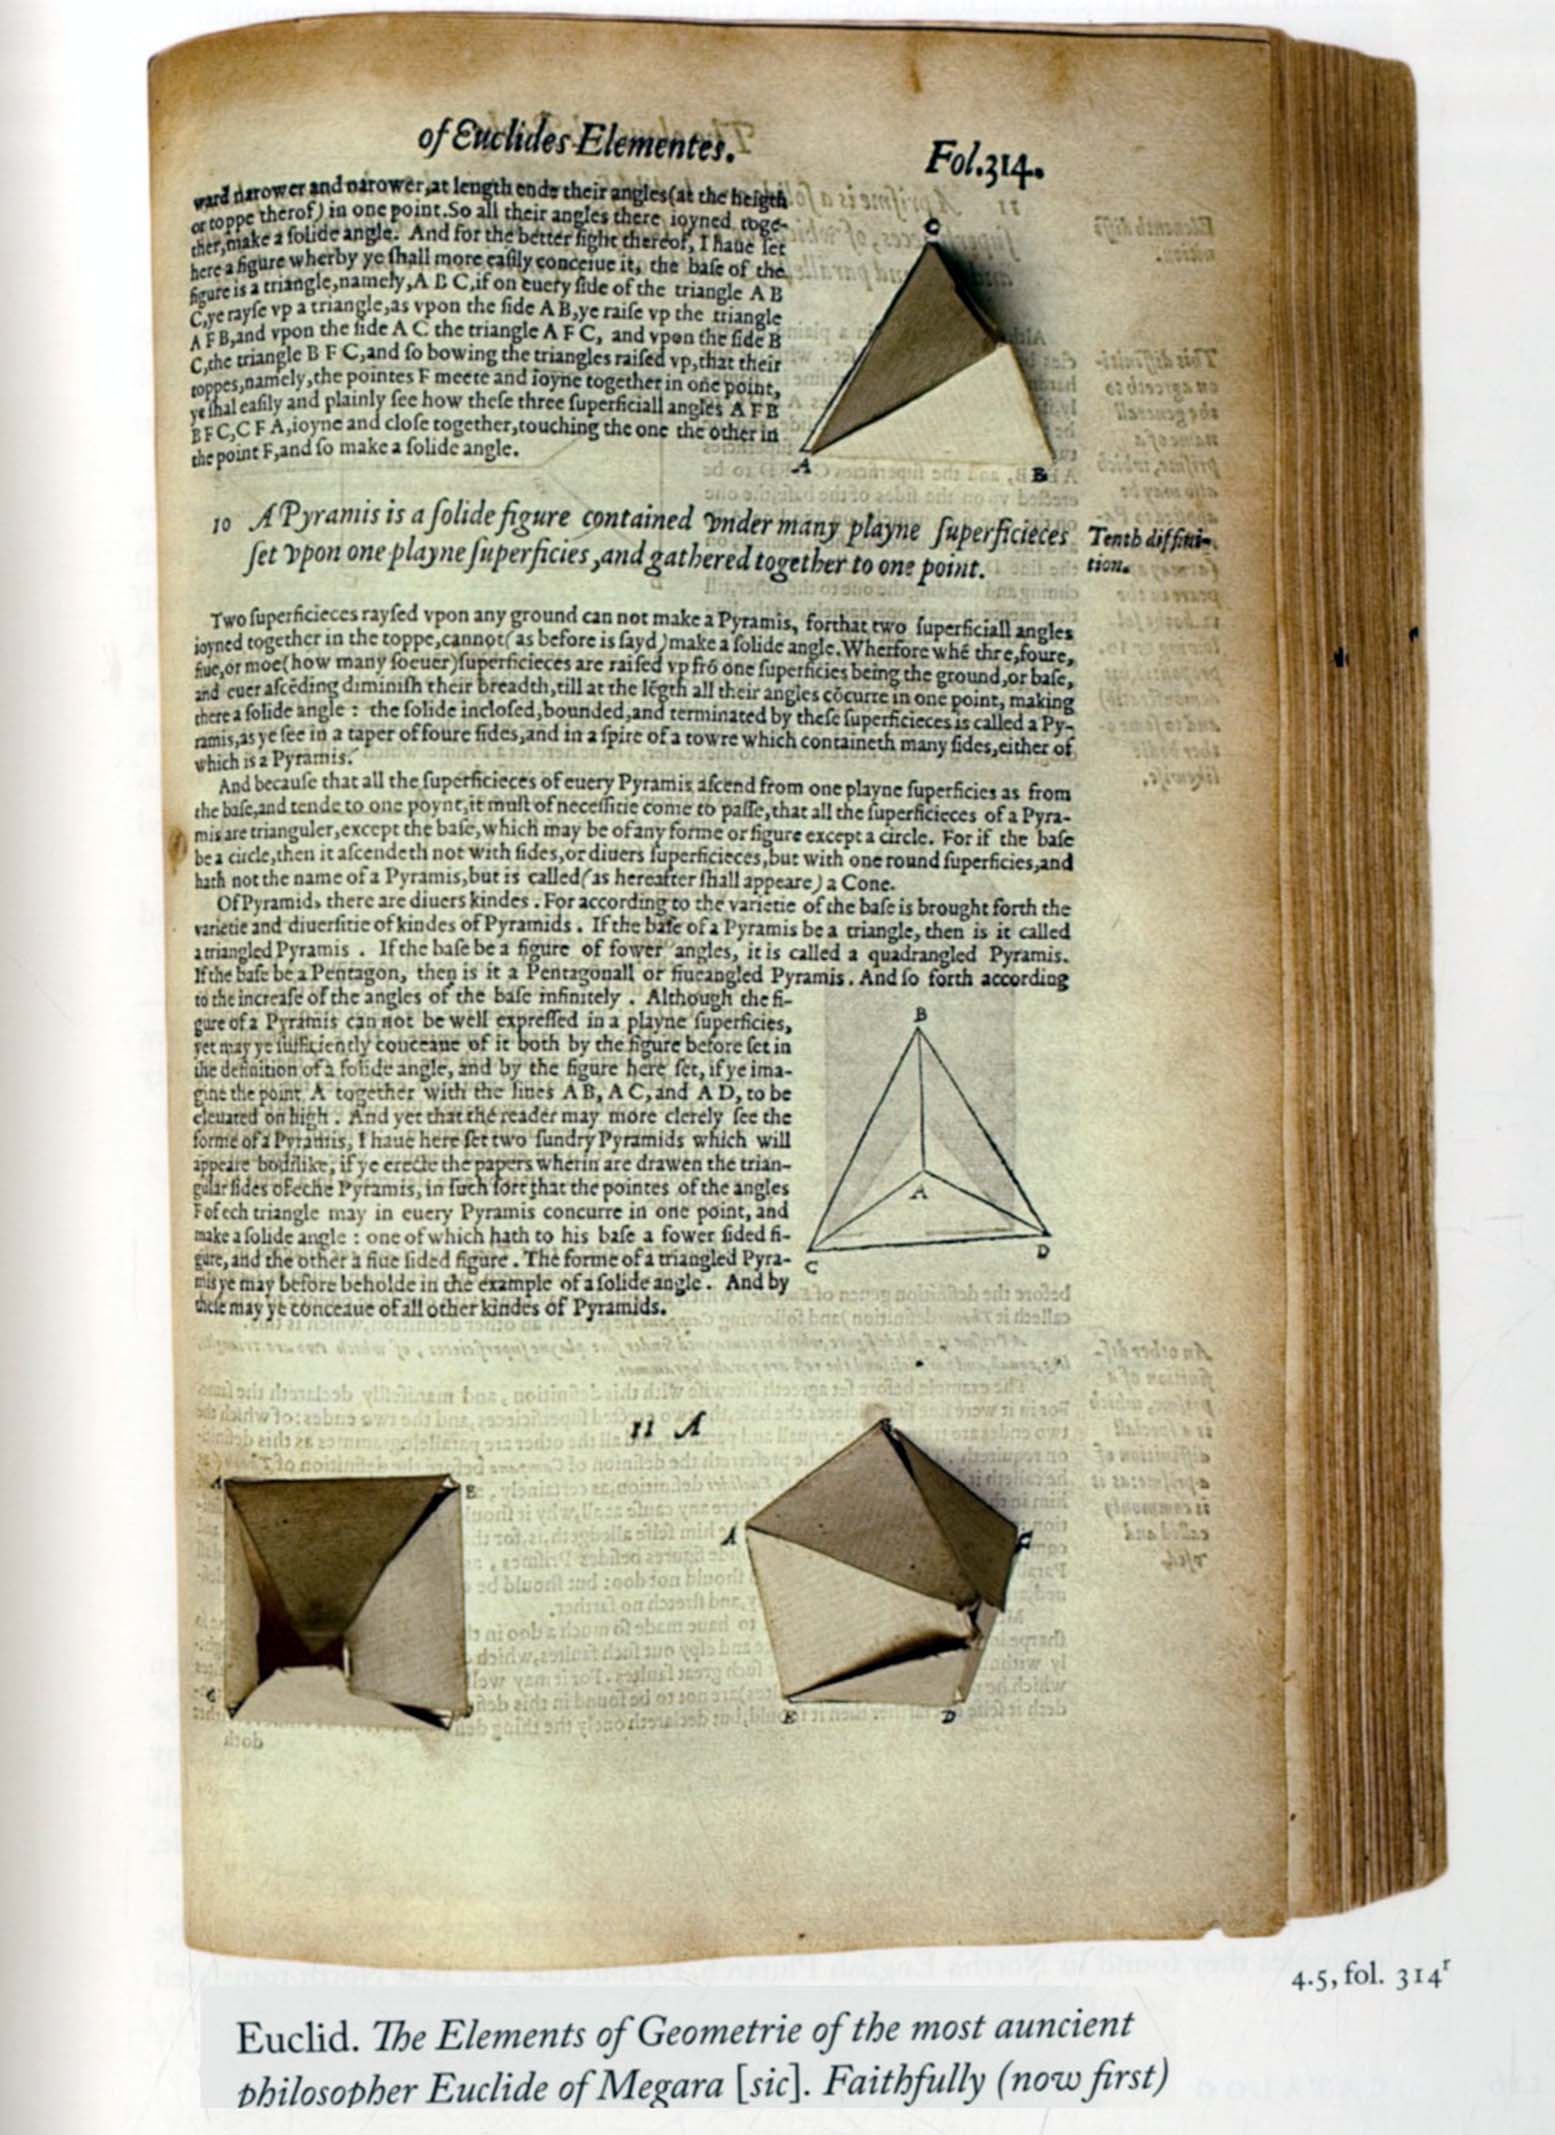 of Euclides Elementes.
Fol.314.
ward narower and narower, at length ende their angles (at the heigth
or toppe therof) in one point. So all their angles there ioyned toge-
ther, make a ſolide angle. And for the better ſight thereof, I haue ſet
here a figure wherby ye ſhall more eaſily conceiue it, the baſe of the
figure is a triangle, namely, A B C, if on euery ſide of the triangle A B
C, ye rayſe vp a triangle, as vpon the ſide A B, ye raiſe vp the triangle
A F B, and vpon the ſide A C the triangle A F C, and vpon the ſide B
C, the triangle B F C, and ſo bowing the triangles raiſed vp, that their
toppes, namely, the pointes F meete and ioyne together in one point,
ye ſhal eaſily and plainly ſee how theſe three ſuperficiall angles A F B
B F C, C F A, ioyne and cloſe together, touching the one the other in
the point F, and ſo make a ſolide angle.
C
A
B
10 A Pyramis is a ſolide figure contained vnder many playne ſuperficieces
ſet vpon one playne ſuperficies, and gathered together to one point.
Tenth diffini-
tion.
Two ſuperficieces rayſed vpon any ground can not make a Pyramis, forthat two ſuperficiall angles
ioyned together in the toppe, cannot (as before is ſayd) make a ſolide angle. Wherfore whē thre, foure,
fiue, or moe (how many ſoeuer) ſuperficieces are raiſed vp frō one ſuperficies being the ground, or baſe,
and euer aſcēding diminiſh their breadth, till at the lēgth all their angles cōcurre in one point, making
there a ſolide angle : the ſolide incloſed, bounded, and terminated by theſe ſuperficieces is called a Py-
ramis, as ye ſee in a taper of foure ſides, and in a ſpire of a towre which containeth many ſides, either of
which is a Pyramis.
And becauſe that all the ſuperficieces of euery Pyramis aſcend from one playne ſuperficies as from
the baſe, and tende to one poynt, it muſt of neceſſitie come to paſſe, that all the ſuperficieces of a Pyra-
mis are trianguler, except the baſe, which may be of any forme or figure except a circle. For if the baſe
be a circle, then it aſcendeth not with ſides, or diuers ſuperficieces, but with one round ſuperficies, and
hath not the name of a Pyramis, but is called (as hereafter ſhall appeare) a Cone.
Of Pyramids there are diuers kindes . For according to the varietie of the baſe is brought forth the
varietie and diuerſitie of kindes of Pyramids . If the baſe of a Pyramis be a triangle, then is it called
a triangled Pyramis . If the baſe be a figure of fower angles, it is called a quadrangled Pyramis.
If the baſe be a Pentagon, then is it a Pentagonall or fiueangled Pyramis . And ſo forth according
to the increaſe of the angles of the baſe infinitely . Although the fi-
gure of a Pyramis can not be well expreſſed in a playne ſuperficies,
yet may ye ſufficiently conceaue of it both by the figure before ſet in
the definition of a ſolide angle, and by the figure here ſet, if ye ima-
gine the point A together with the lines A B, A C, and A D, to be
eleuated on high . And yet that the reader may more clerely ſee the
forme of a Pyramis, I haue here ſet two ſundry Pyramids which will
appeare bodilike, if ye erecte the papers wherin are drawen the trian-
gular ſides of eche Pyramis, in ſuch ſort that the pointes of the angles
F of ech triangle may in euery Pyramis concurre in one point, and
make a ſolide angle : one of which hath to his baſe a fower ſided fi-
gure, and the other a fiue ſided figure . The forme of a triangled Pyra-
mis ye may before beholde in the example of a ſolide angle . And by
theſe may ye conceaue of all other kindes of Pyramids.
B
A
C
D
11 A
A
B
A
C
E
D
4.5, fol. 314r
Euclid. The Elements of Geometrie of the most auncient
philosopher Euclide of Megara [sic]. Faithfully (now first)